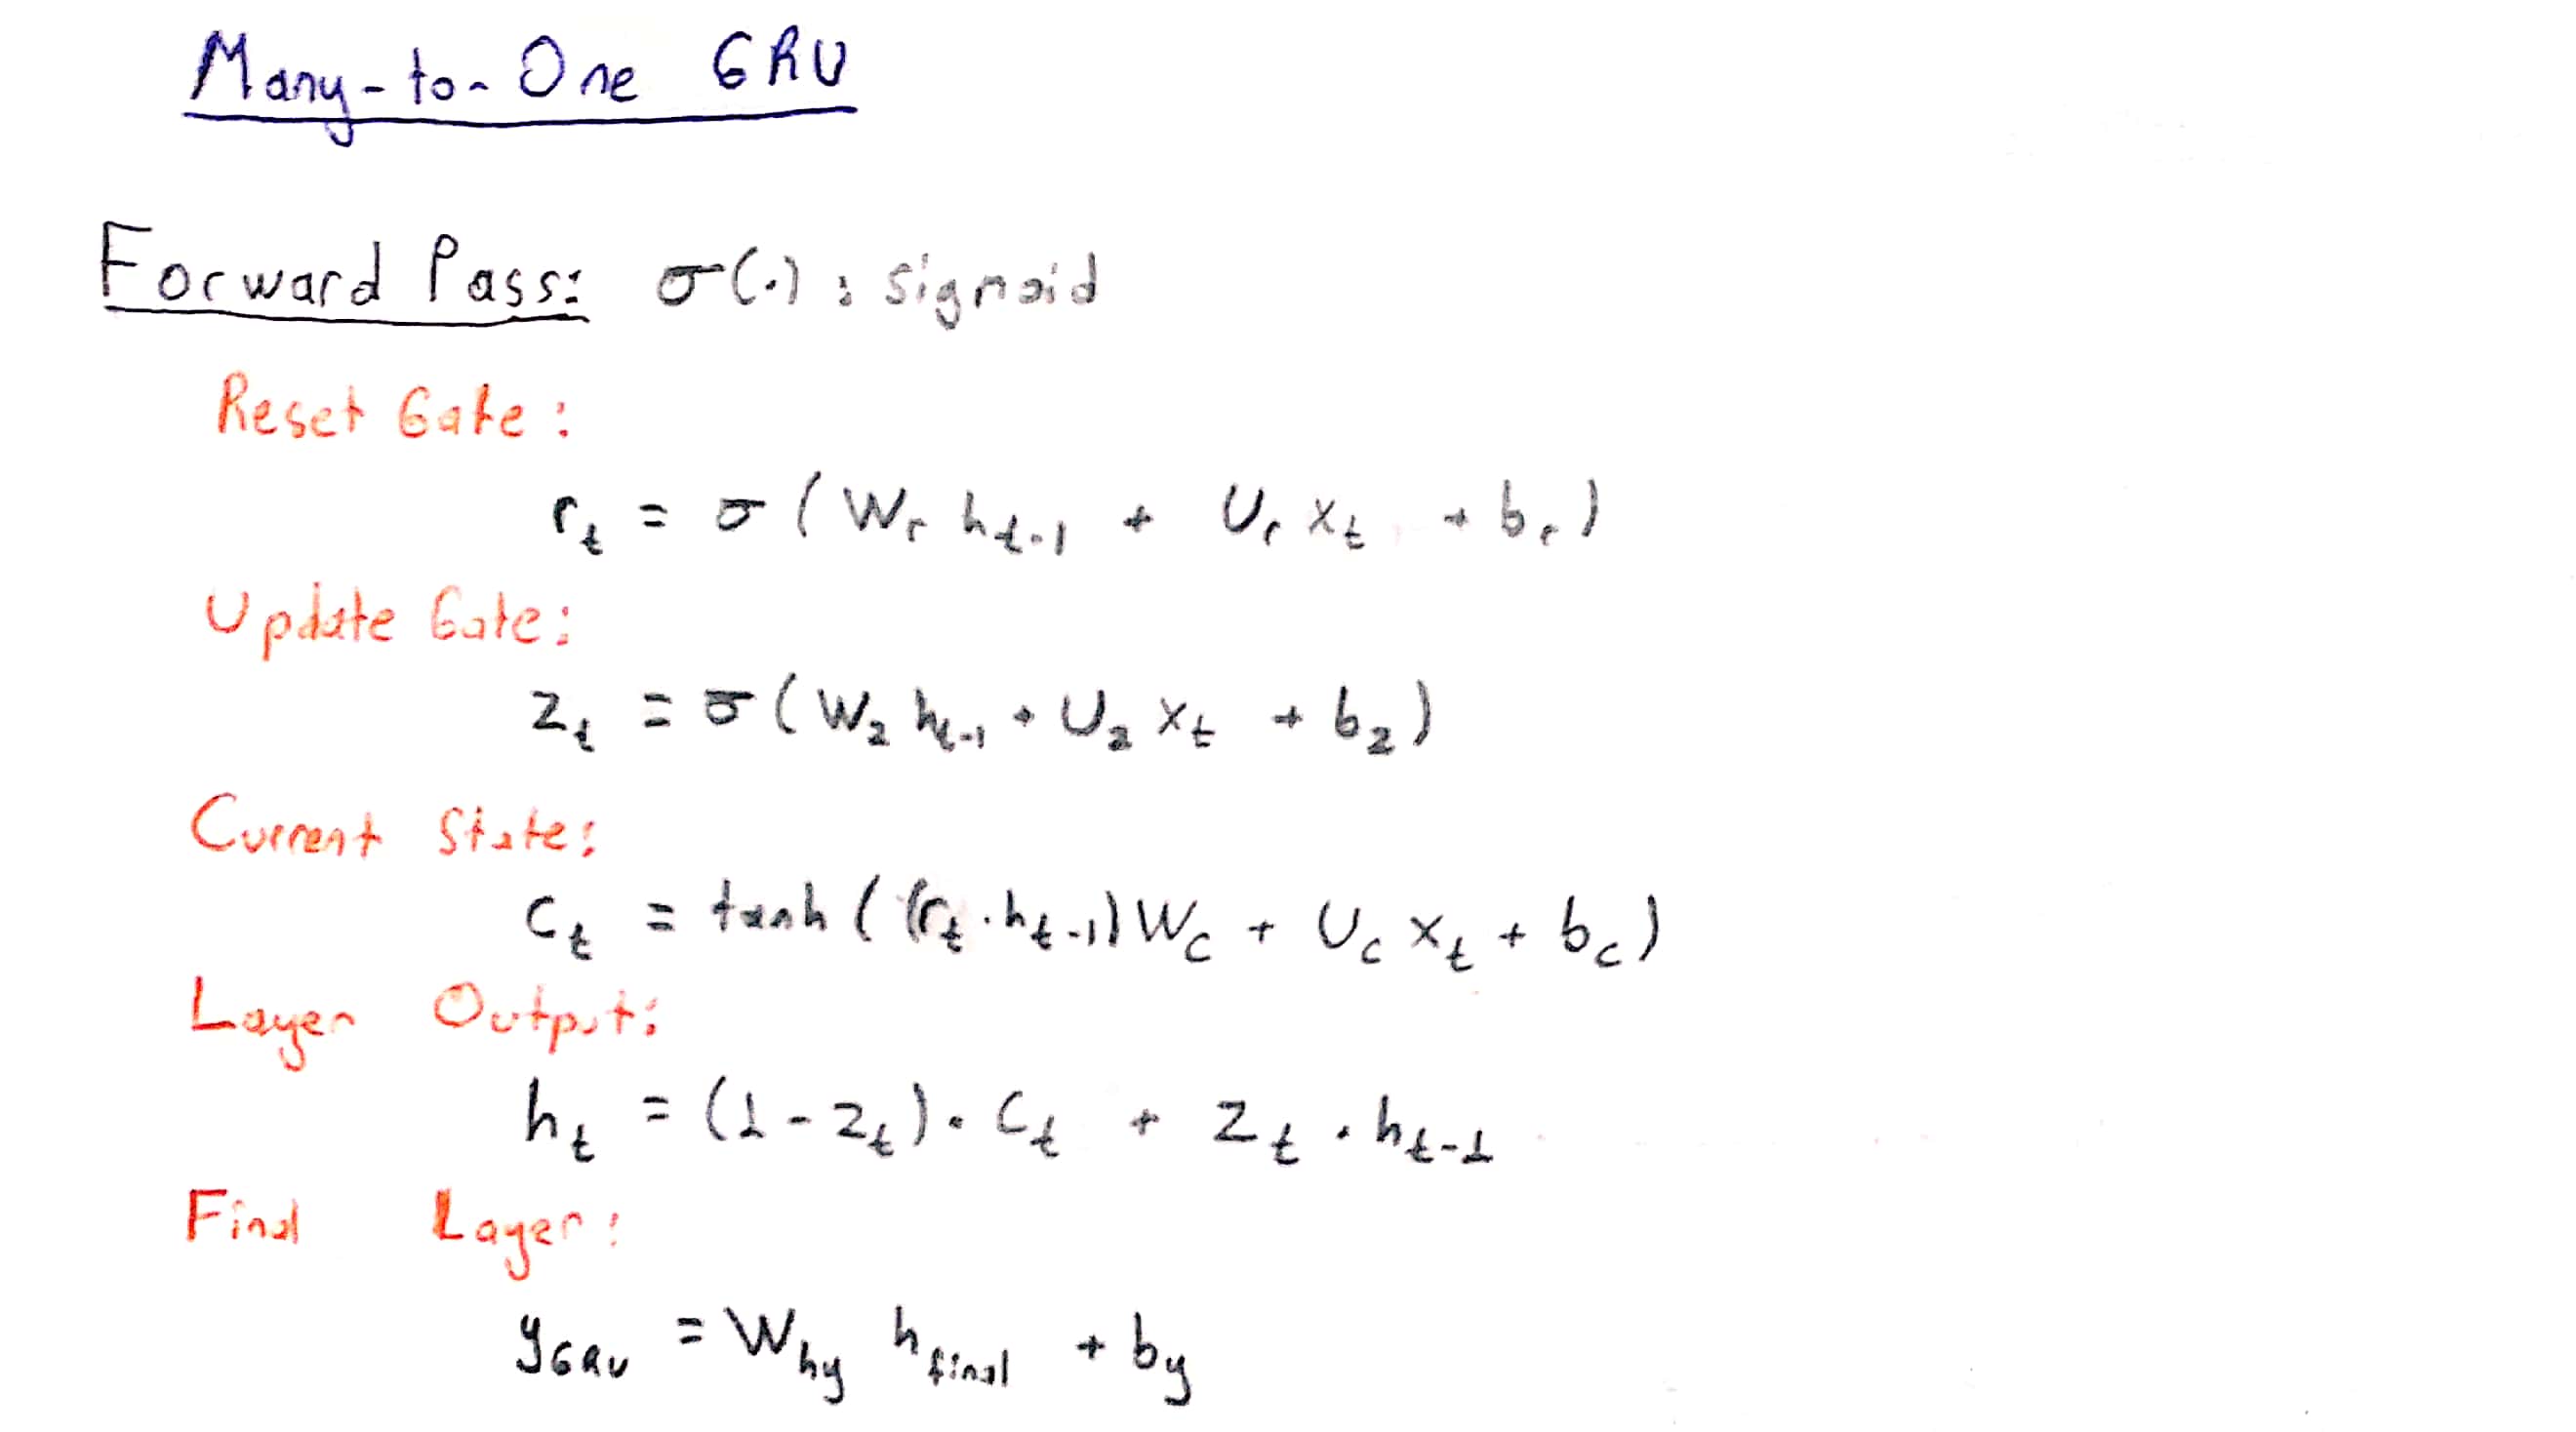 Many-to-One GRU
Forward Pass: σ(.) : sigmoid
Reset Gate:
r_t = σ(W_r h_{t-1} + U_r x_t + b_r)
Update Gate:
z_t = σ(W_z h_{t-1} + U_z x_t + b_z)
Current State:
c_t = tanh((r_t · h_{t-1}) W_c + U_c x_t + b_c)
Layer Output:
h_t = (1 - z_t) · c_t + z_t · h_{t-1}
Final Layer:
y_{GRU} = W_{hy} h_{final} + b_y